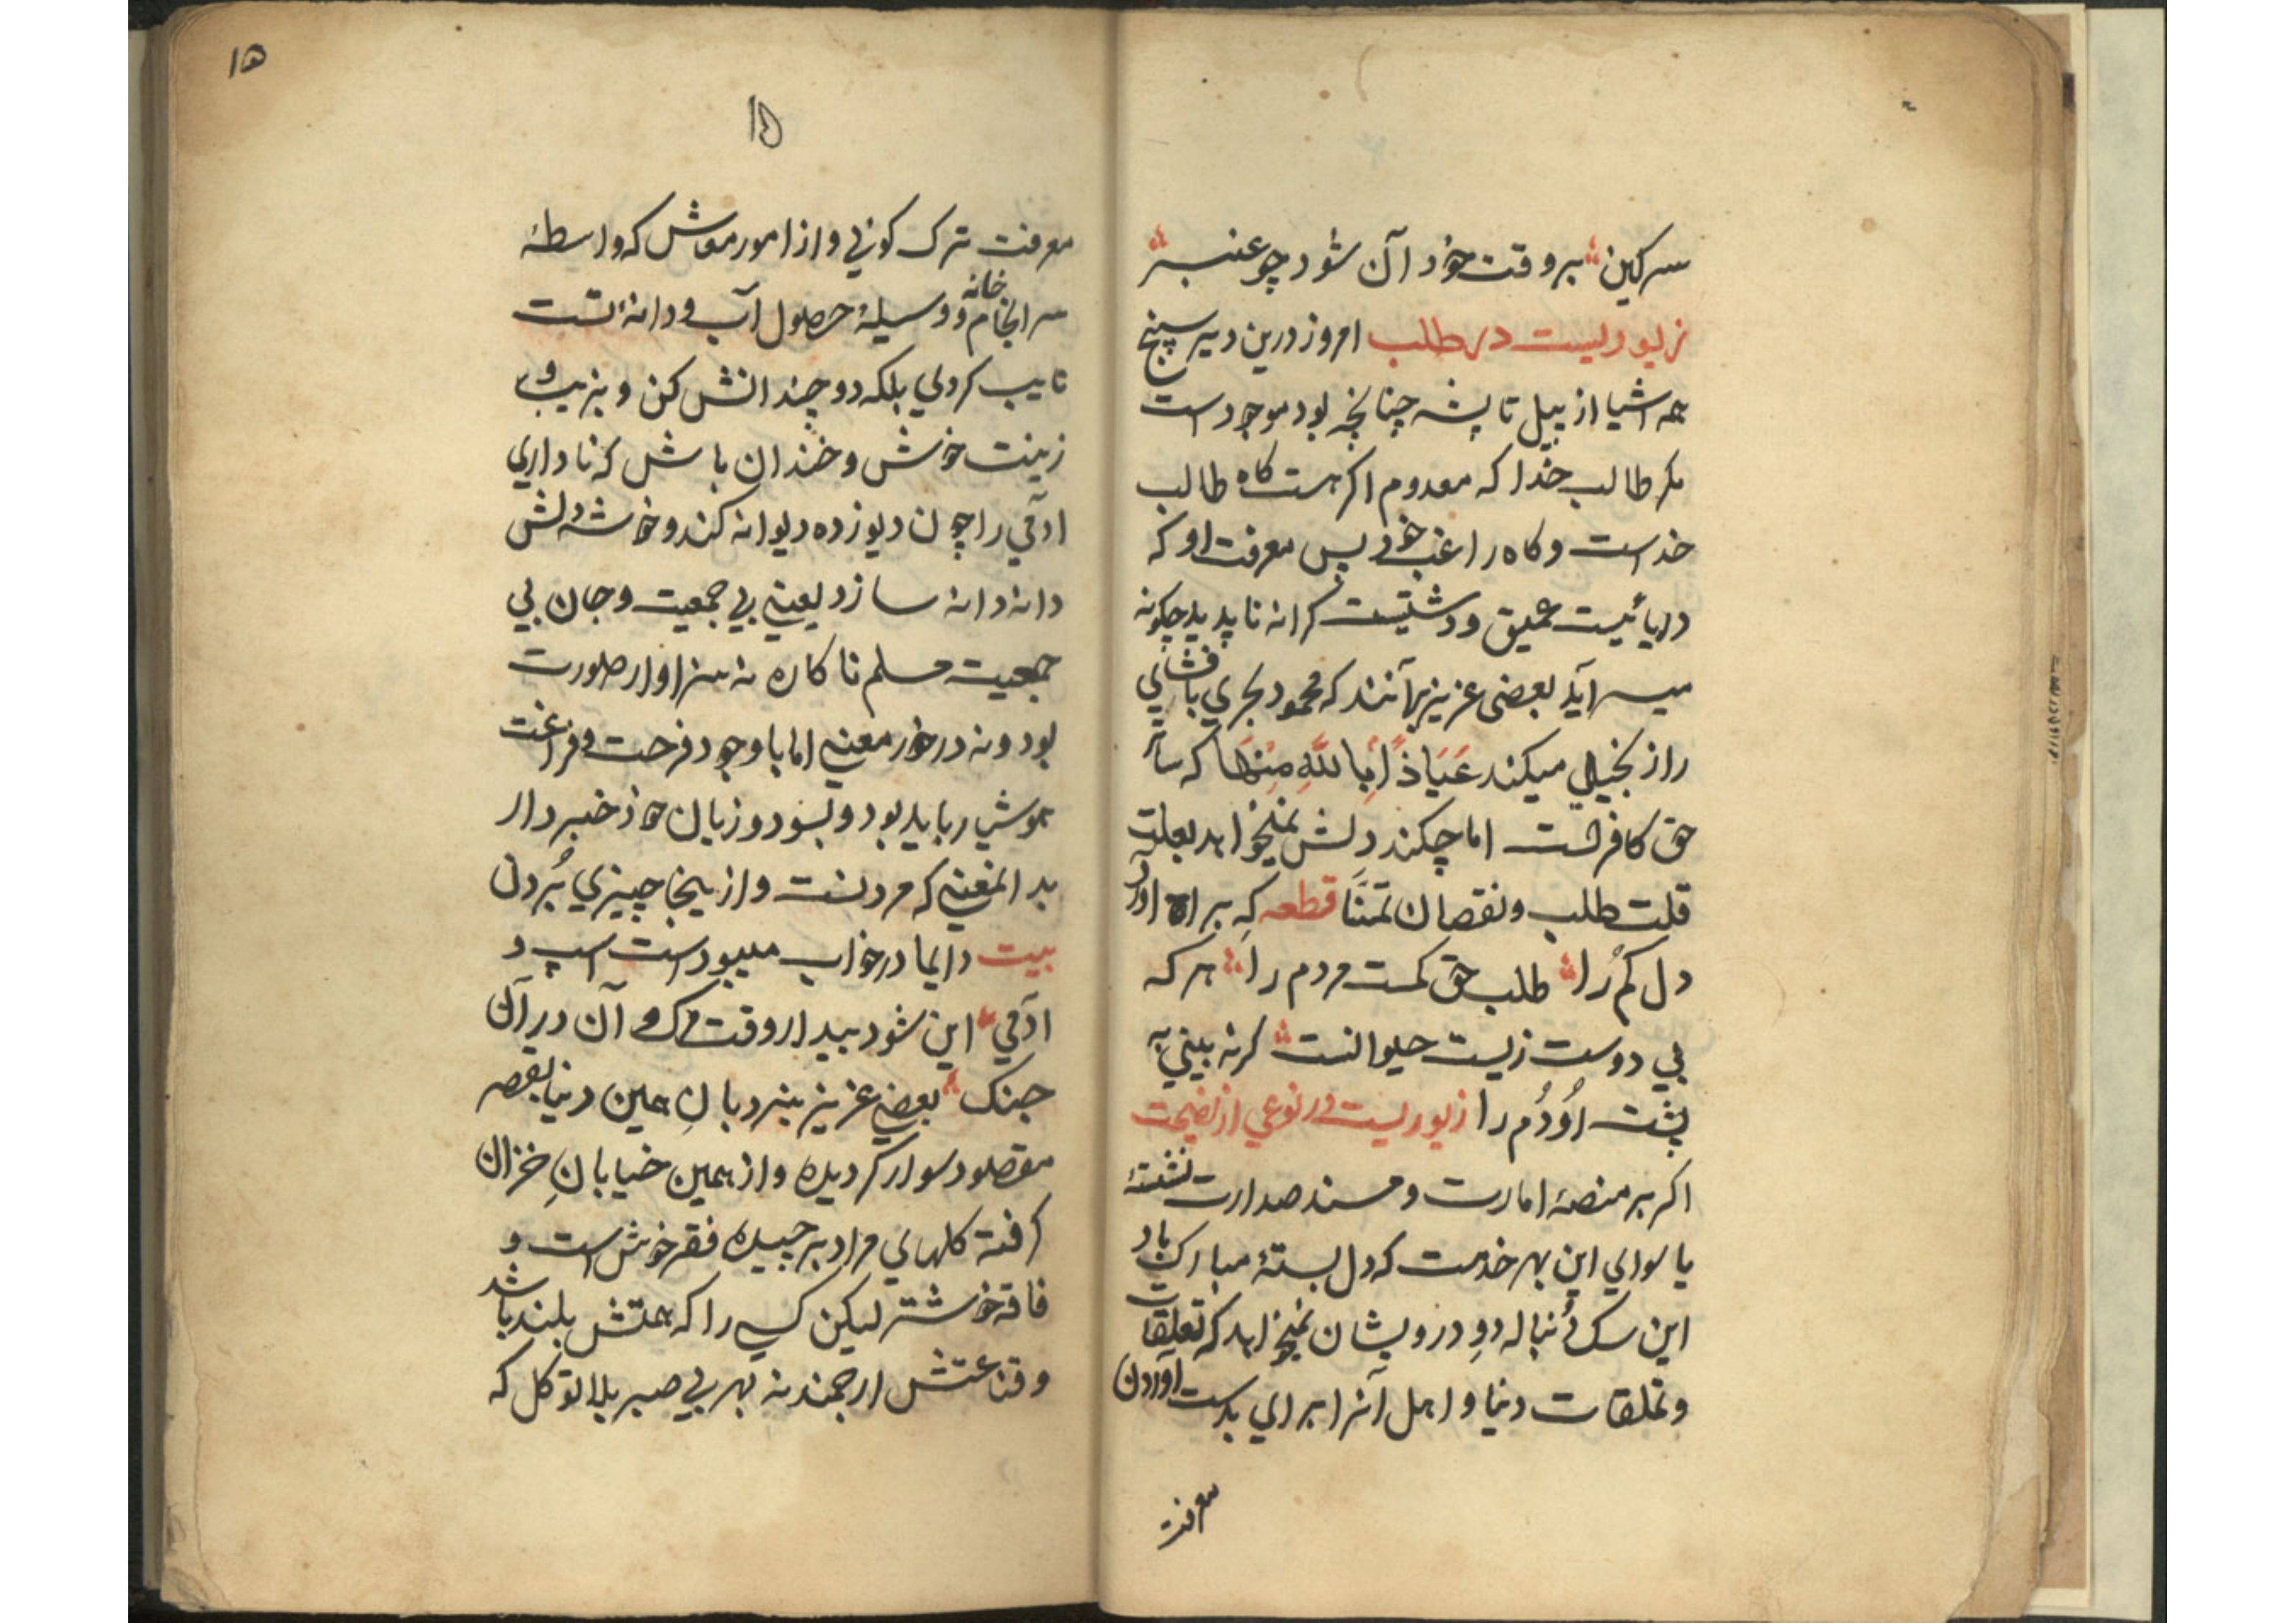 سرکین بر وقت خود آن شود چو عنبر
زیوریست در طلب امروز درین دیر سپنج
همه اشیا از پیل تا پشه چنانچه بود موجود است
مکر طالب خدا که معدوم اکر هست کاه طالب
خداست و کاه راغب خود پس معرفت او که
دریائیست عمیق و دشتیست کرانه ناپدید چکونه
میسر آید بعضی عزیز برآنند که محمود بحری پاقشانی
را از بخیلی میکند عَیَاذًا بِاللَّهِ مِنْهَا که ساتر
حق کافرست اما چکند دلش نمیخواهد بعلت
قلت طلب و نقصان تمنّا قطعه که براه آورد
دل کم را طلب حق کمست مردم را هر که
بی دوست زیست حیوانست کر نه بینی به
پشت اُو دُم را زیوریست در نوعی از نصیحت
اکر بر منصهٔ امارت و مسند صدارت نشستهٔ
یا لوای این بهر خدمت که دل بستهٔ مبارک باد
این سک دُنباله دوِ درویشان نمیخواهد که تعلیقات
و تملقات دنیا و اهل آنرا برای بدست آوردن
معرفت
۱۵
۱۵
معرفت ترک کونی و از امور معاش که واسطهٔ
سرانجام خانه و وسیلهٔ حصول آب و دانهٔ تست
تایب کردی بلکه دو چندانش کن و بزیب و
زینت خوش و خندان باش که ناداری
آدمی را چون دیو زده دیوانه کند و خوشهٔ دلش
دانه دانه سازد یعنی بی جمعیت و جان بی
جمعیت مسلم ناکاره نه سزاوار صورت
بود و نه درخور معنی اما با وجود فرحت و فراغت
هوشیار باید بود و بسود و زیان خود خبردار
بد المعنی که مردنست و از ینجا چیزی بُردن
بیت دایما در خواب میبودست اسپ و
آدمی این شود بیدار وقت مرک و آن در آن
جنک بعضی عزیز بنردبانِ همین دنیا بقصر
مقصود سوار کردیده و از همین خیابانِ خزان
کرفته کلهای مراد برچیده فقر خوش است و
فاقه خوشتر لیکن کسی را که همتش بلند باشد
و قناعتش ارجمند نه بهر بی صبر بلا توکل که